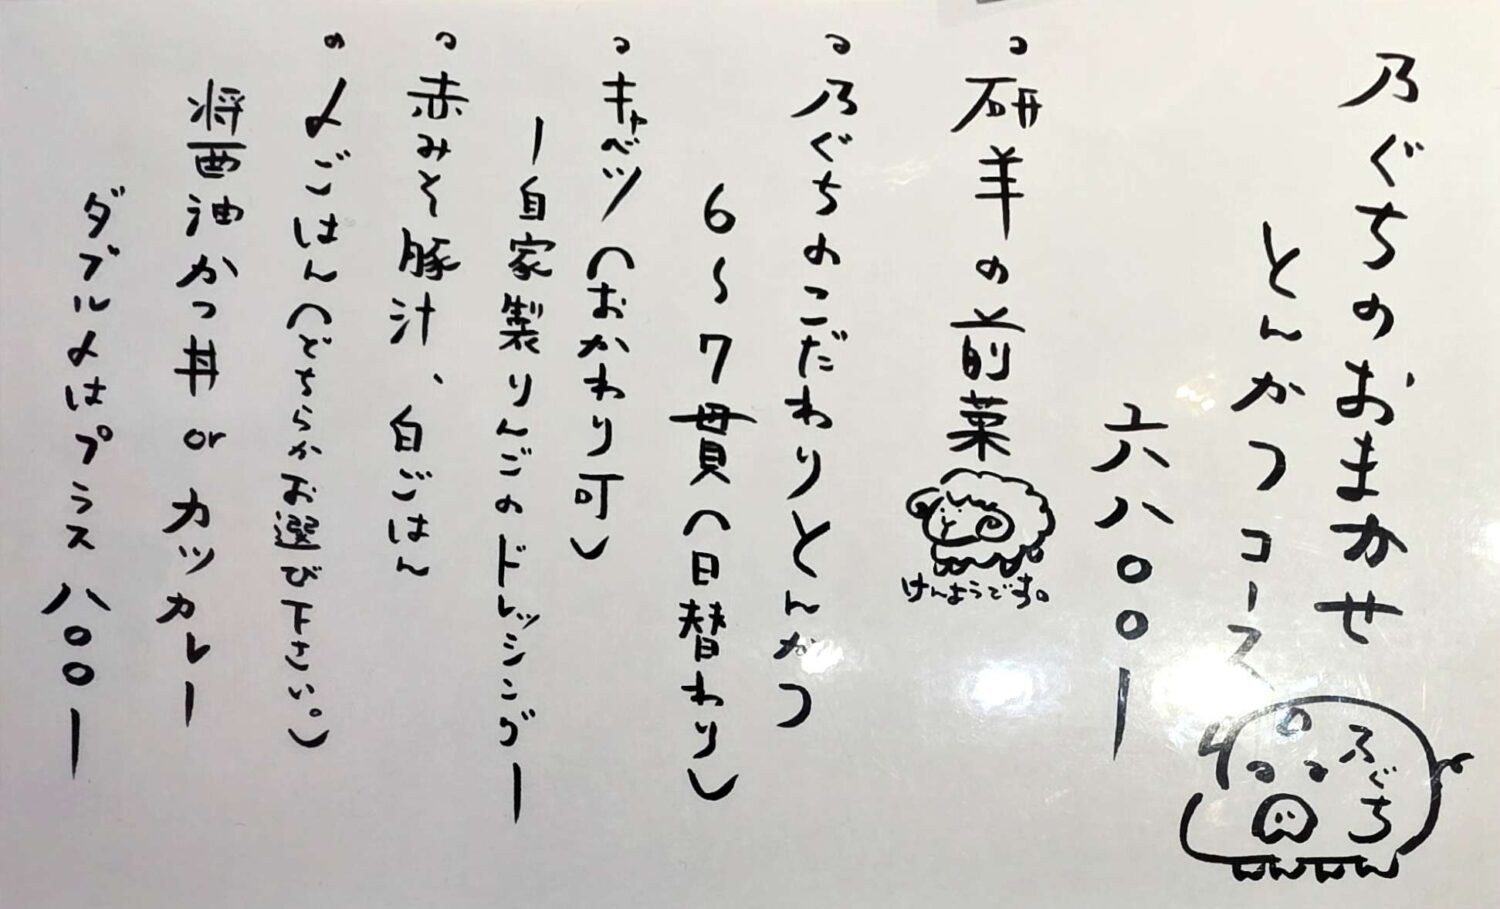 乃ぐちのおまかせ
とんかつコース
六八〇〇ー
乃ぐち
。研羊の前菜
けんようです。
。乃ぐちのこだわりとんかつ
6〜7貫(日替わり)
。キャベツ(おかわり可)
ー自家製りんごのドレッシングー
。赤みそ豚汁、白ごはん
。〆ごはん(どちらかお選び下さい。)
醤油かつ丼 or カツカレー
ダブル〆はプラス八〇〇ー